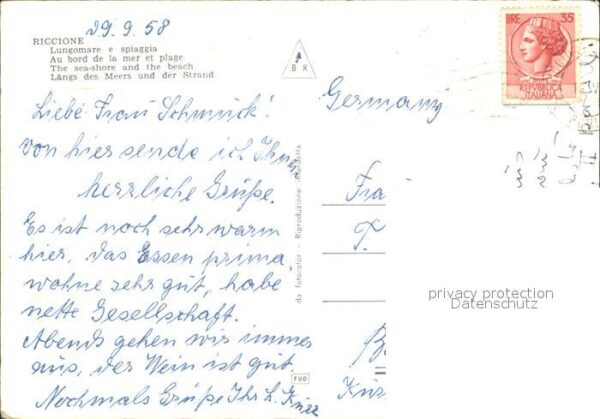 29.9.58
RICCIONE
Lungomare e spiaggia
Au bord de la mer et plage
The sea-shore and the beach
Längs des Meers und der Strand
B R
LIRE 35
REPUBBLICA
ITALIANA
Germany
Liebe Frau Schmück!
von hier sende ich Ihnen
herrliche Grüße.
Es ist noch sehr warm
hier, das Essen prima,
wohne sehr gut, habe
nette Gesellschaft.
Abends gehen wir immer
aus, der Wein ist gut.
Nochmals Grüße Ihr
da fotocolor - Riproduzione interdetta
privacy protection
Datenschutz